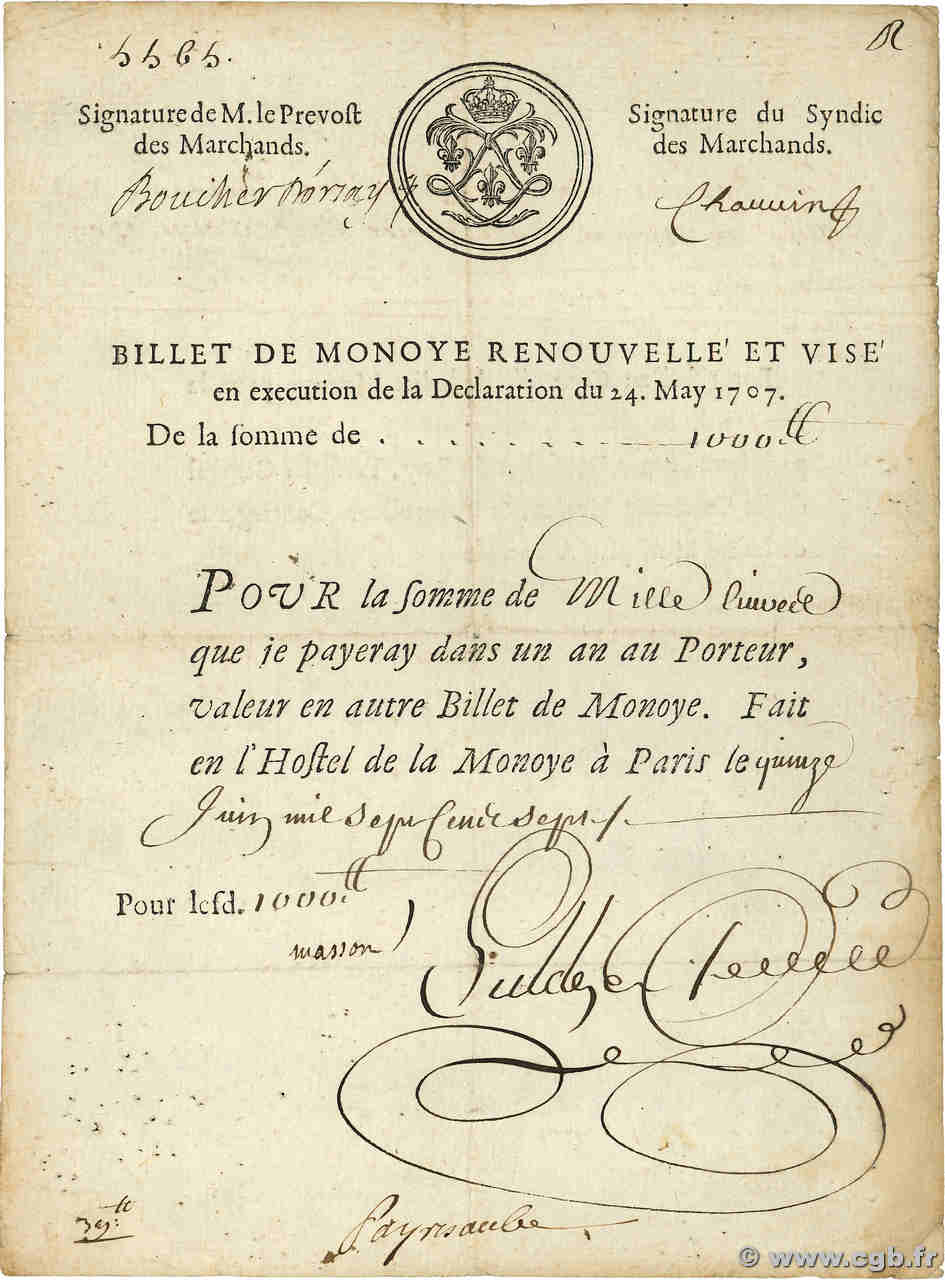 5565.
R
Signature de M. le Prevost
des Marchands.
Boucher Dorsay
Signature du Syndic
des Marchands.
Chauvin
BILLET DE MONOYE RENOUVELLE' ET VISE'
en execution de la Declaration du 24. May 1707.
De la somme de . . . . . . . . 1000
POUR la somme de Mille livres
que je payeray dans un an au Porteur,
valeur en autre Billet de Monoye. Fait
en l'Hostel de la Monoye à Paris le quinze
Juin mil sept cent sept
Pour lesd. 1000
masson
© www.cgb.fr